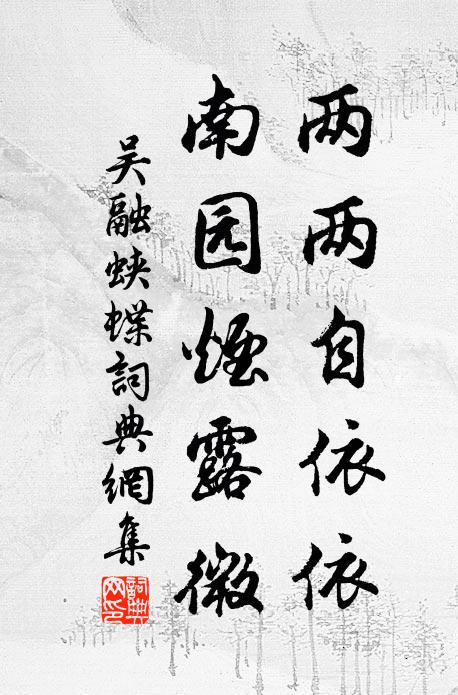 两两自依依
南园煙露微
吴融蛱蝶詞典網集